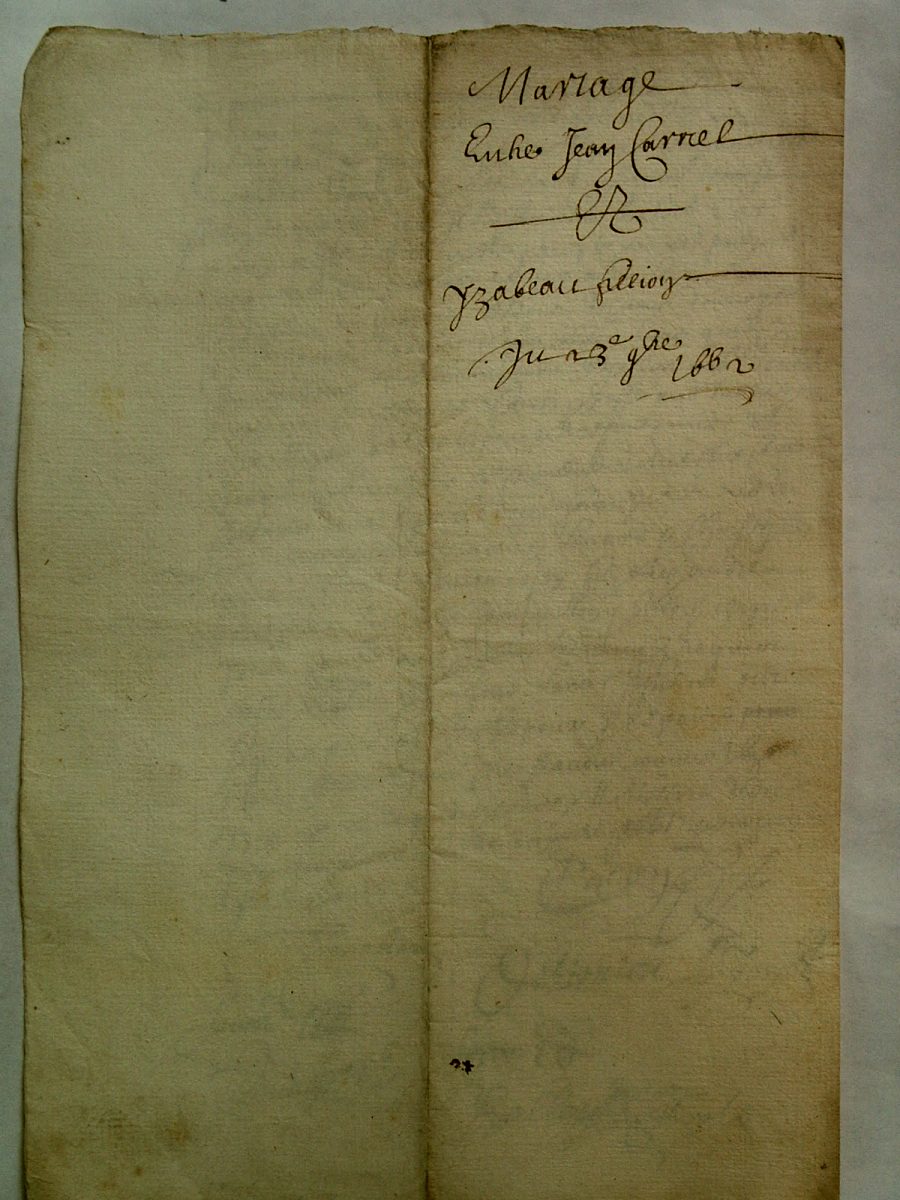 Mariage
Entre Jean Carriel
Et
Yzabeau
Du 23e 9bre 1662